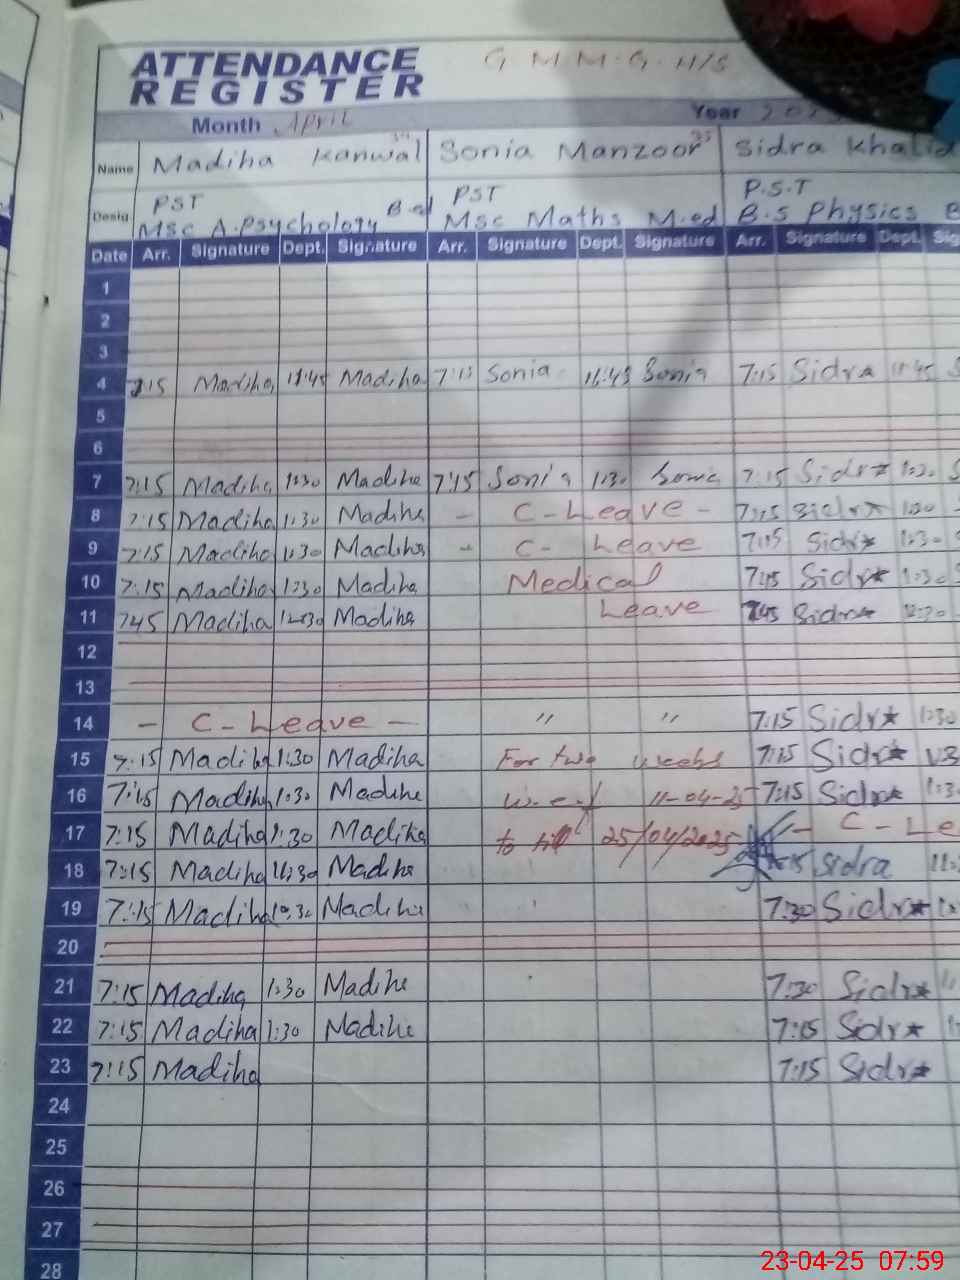 ATTENDANCE G M M G H/S
REGISTER
Month April Year
Name Madiha Kanwal Sonia Manzoor Sidra Khalid
Desig PST B.ed PST P.S.T
MSc A.Psychology MSc Maths M.ed B.S Physics B
Date Arr. Signature Dept. Signature Arr. Signature Dept. Signature Arr. Signature Dept. Sig
1
2
3
4 7:15 Madiha 11:45 Madiha 7:15 Sonia 11:45 Sonia 7:15 Sidra 11:45 S
5
6
7 7:15 Madiha 1:30 Madiha 7:15 Sonia 1:30 Sonia 7:15 Sidra 1:30 S
8 7:15 Madiha 1:30 Madiha - C-Leave - 7:15 Sidra 1:30
9 7:15 Madiha 1:30 Madiha - C- Leave 7:15 Sidra 1:30
10 7:15 Madiha 1:30 Madiha Medical 7:15 Sidra 1:30
11 745 Madiha 12:30 Madiha Leave 745 Sidra 12:30
12
13
14 - C-Leave - " " 7:15 Sidra 1:30
15 7:15 Madiha 1:30 Madiha For two weeks 7:15 Sidra
16 7:15 Madiha 1:30 Madiha w.e.f 11-04-25 7:15 Sidra 1:3
17 7:15 Madiha 1:30 Madiha to till 25/04/2025 - C-Le
18 7:15 Madiha 11:30 Madiha Sidra
19 7:15 Madiha 10:30 Madiha 7:30 Sidra
20
21 7:15 Madiha 1:30 Madiha 7:30 Sidra
22 7:15 Madiha 1:30 Madiha 7:15 Sidra
23 7:15 Madiha 7:15 Sidra
24
25
26
27
28
23-04-25 07:59